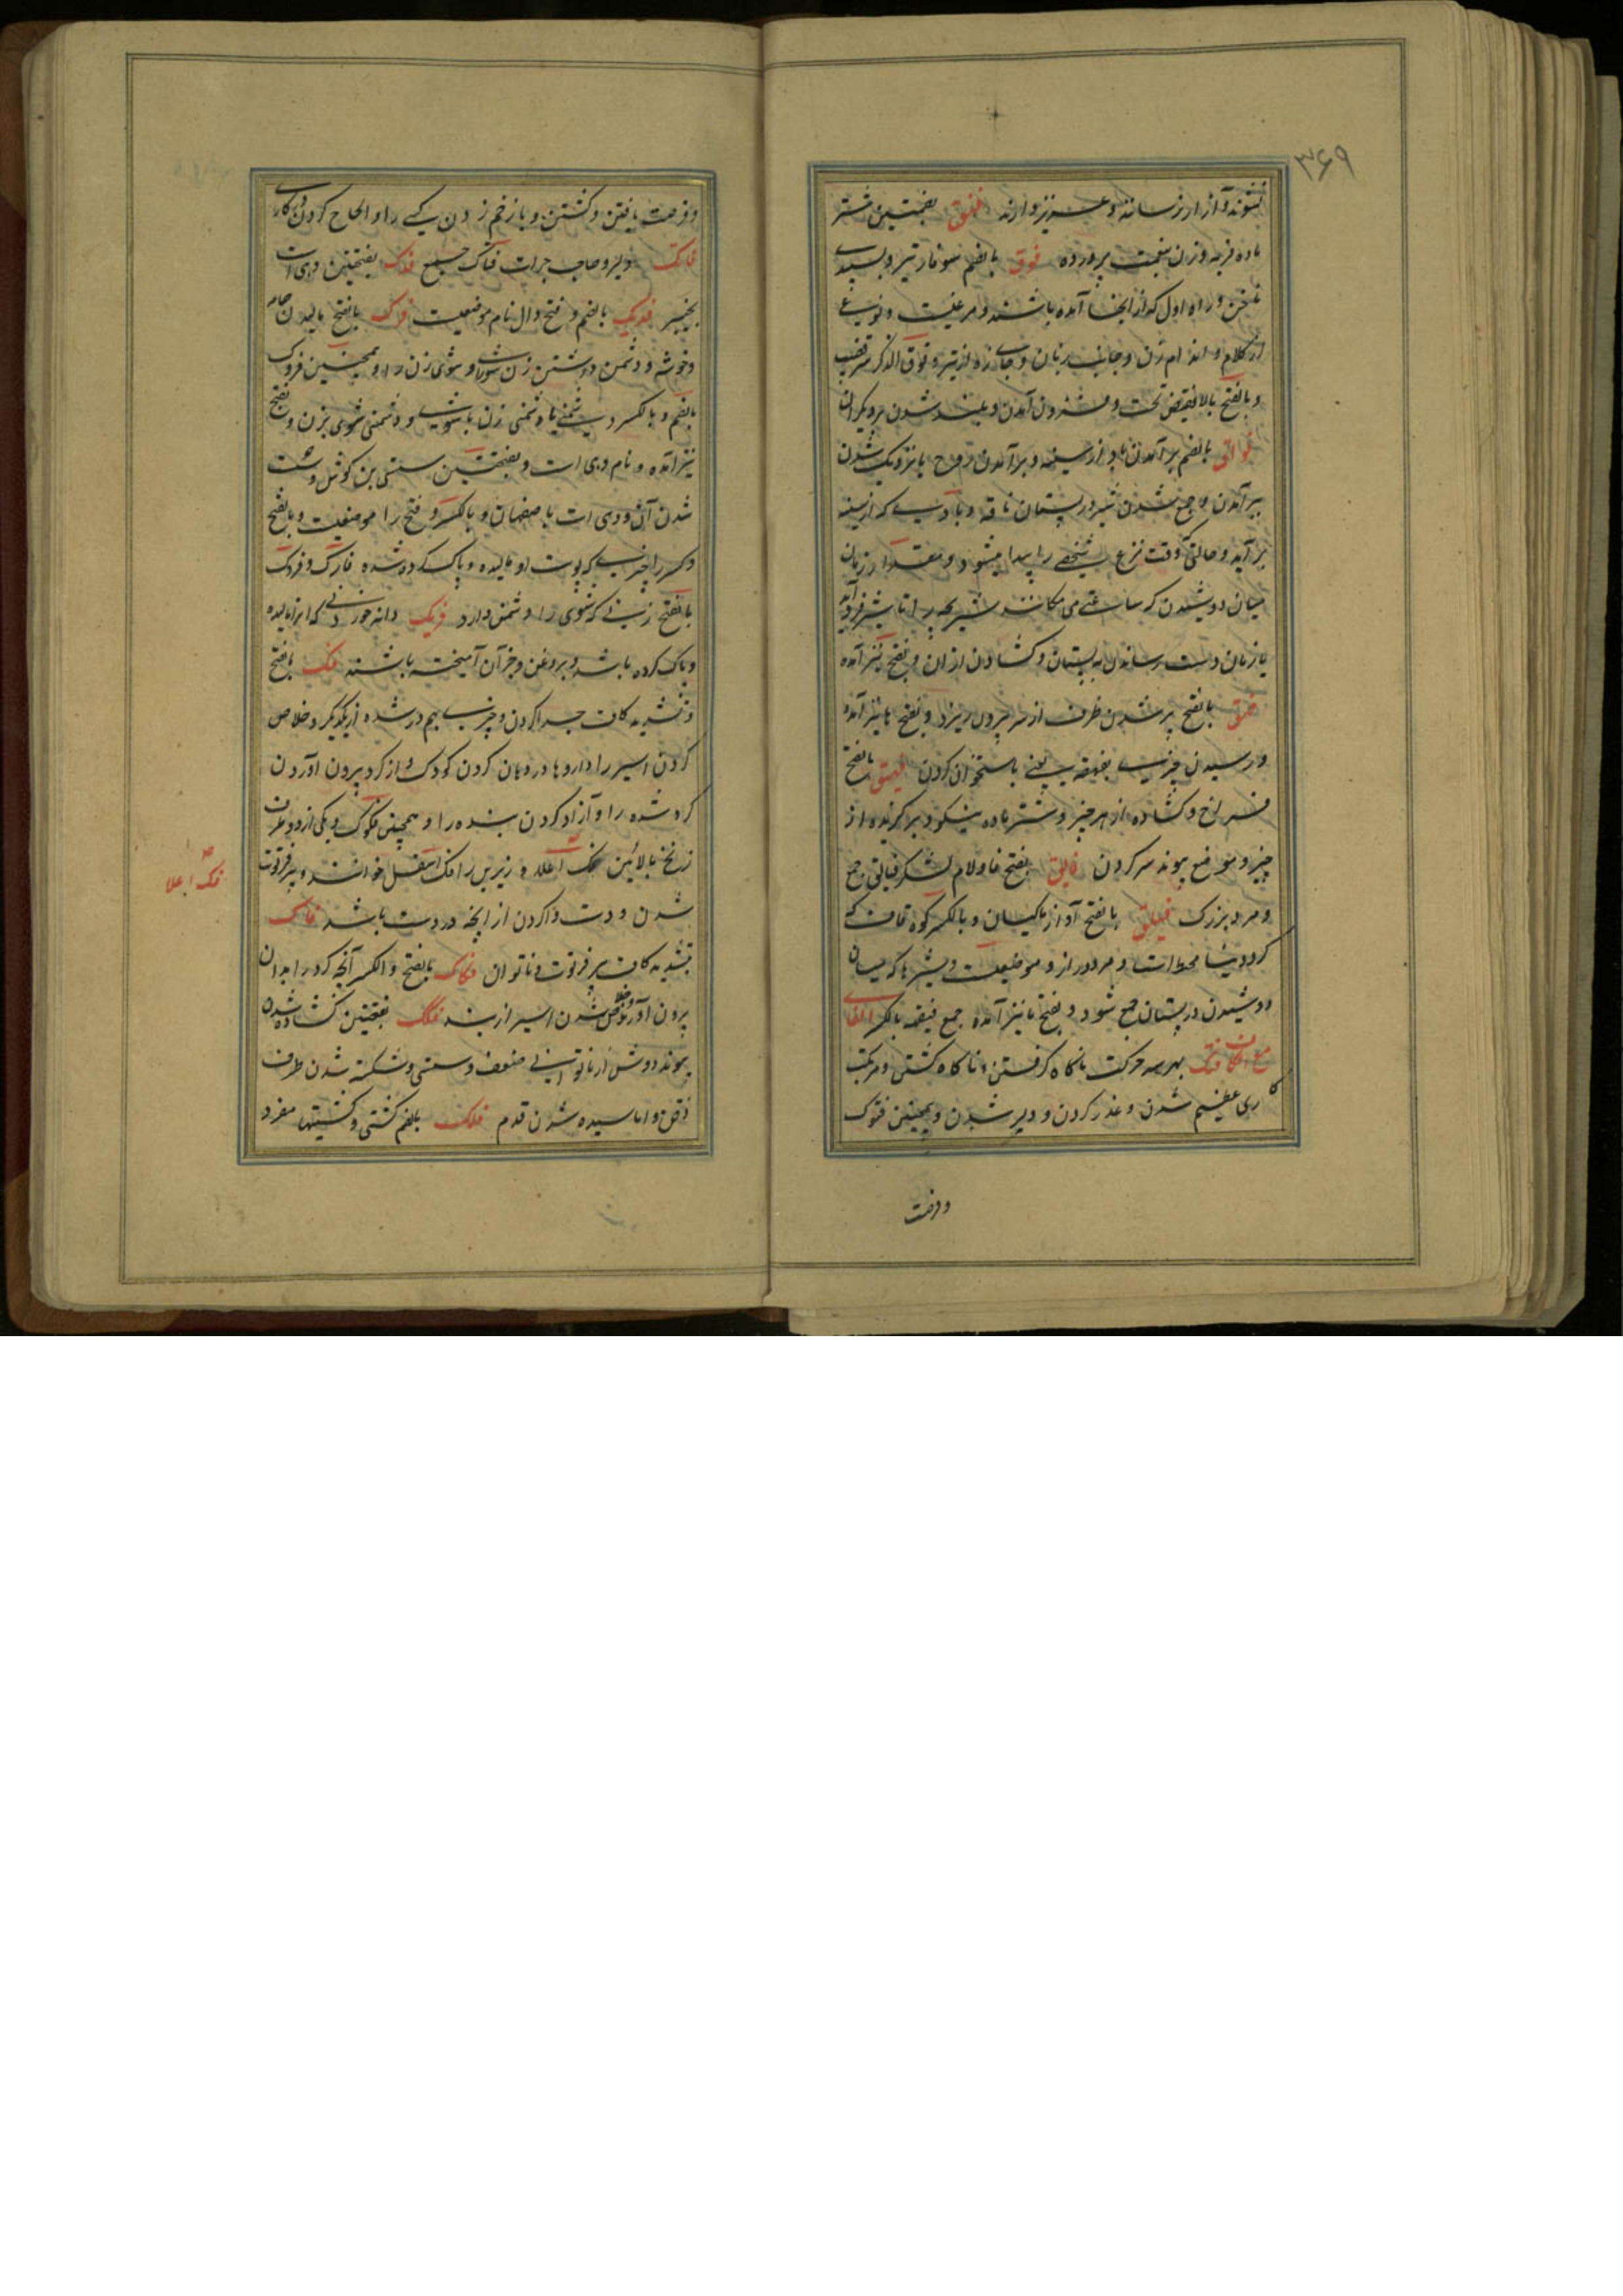 ۳۶۹
نشوند و آزار نرسانند و عزیز دارند فنق بضمتین شتر
ماده فربه و زن بنعمت پرورده فوق بالضم سوفار تیر و سپیدی
ناخن و راه اول که از آنجا آمده باشند و مرغیست و نوعی
از کلام و اندام زن و جانب زبان و جای زه از تیر و فوق الذکر سر قضیب
و بالفتح بالا نقیض تحت و افزون آمدن و بلند شدن بر دیگران
فواق بالضم بر آمدن باد از سینه و بر آمدن روح یا نزدیک شدن
ببر آمدن و جمع شدن شیر در پستان ناقه و بادی که از سینه
بر آید و حالتی که وقت نزع شخصی را پیدا میشود و مقدار زمان
میان دوشیدن که ساعتی می مکانند شیر بچه را تا شیر فرود آید
یا زمان دست رساندن به پستان و کشادن از آن و بفتح نیز آمده
فهق بالفتح پر شدن ظرف از سر بیرون ریزد و بفتح ها نیز آمده
و رسیدن چیزی بفهقه یعنی باستخوان گردن فیهق بالفتح
فراخ و کشاده از هر چیز و شتر ماده نیکو
چیز و موضع پیوند سر گردن بفتح فا و لام لشکر فیالق جمع
و مرد بزرگ بالفتح آواز ماکیان و بالکسر کوه قاف که
گرد دنیا محیط است و مرد دراز و موضعیست و شیرها که میان
دوشیدن در پستان جمع شود و بفتح یا نیز آمده جمع فیقه بالکسر الفای
مع الکاف فتک بهر سه حرکت ناگاه گرفتن و ناگاه کشتن و مرتکب
کاری عظیم شدن و غدر کردن و دلیر شدن و همچنین فتوک
و فرصت
و فرصت یافتن و کشتن و باز خم زدن کسی را و الحاح کردن در کاری
فاتک دلیر و صاحب جرات فتاک جمع فدک بفتحتین دهی است
بخیبر فدیک بالضم و فتح دال نام موضعیست فرک بالفتح مالیدن جامه
و خوشه و دشمن داشتن زن شوی را و شوی زن را و همچنین فروک
بالضم و بالکسر دشمنی یا دشمنی زن با شوی و دشمنی شوی بزن و بفتح
نیز آمده و نام دهی است و بفتحتین سستی بن گوش و سست
شدن آن و دهی است باصفهان و بالکسر و فتح را موضعیست و بالفتح
و کسر را چیزی که پوست او مالیده و پاک کرده شده فارک و فروک
بالفتح زنی که شوی را دشمن دارد فریک دانه خوردنی که آنرا مالیده
و پاک کرده باشد و بروغن و جز آن آمیخته باشند فک بالفتح
و تشدید کاف جدا کردن دو چیز بهم در شده از یکدیگر و خلاص
کردن اسیر را و داروها در دهان کردن کودک و از گرو بیرون آوردن
گرو شده را و آزاد کردن بنده را و همچنین فکوک و یکی از دو طرف
زنخ بالائین فک اعلا و زیرین را فک اسفل خوانند و پیر فرتوت
شدن و دست وا کردن از آنچه در دست باشد فاک
بتشدید کاف پیر فرتوت و ناتوان فکاک بالفتح و الکسر آنچه گرو را بدان
بیرون آورند و خلاص شدن اسیر از بند فکک بفتحتین کشاده شدن
پیوند دوش از ناتوانی ضعف و سستی و شکسته شدن طرف
ذقن و اماسیده شدن قدم فلک بالضم کشتی و کشتیها مفرد
فک اعلا